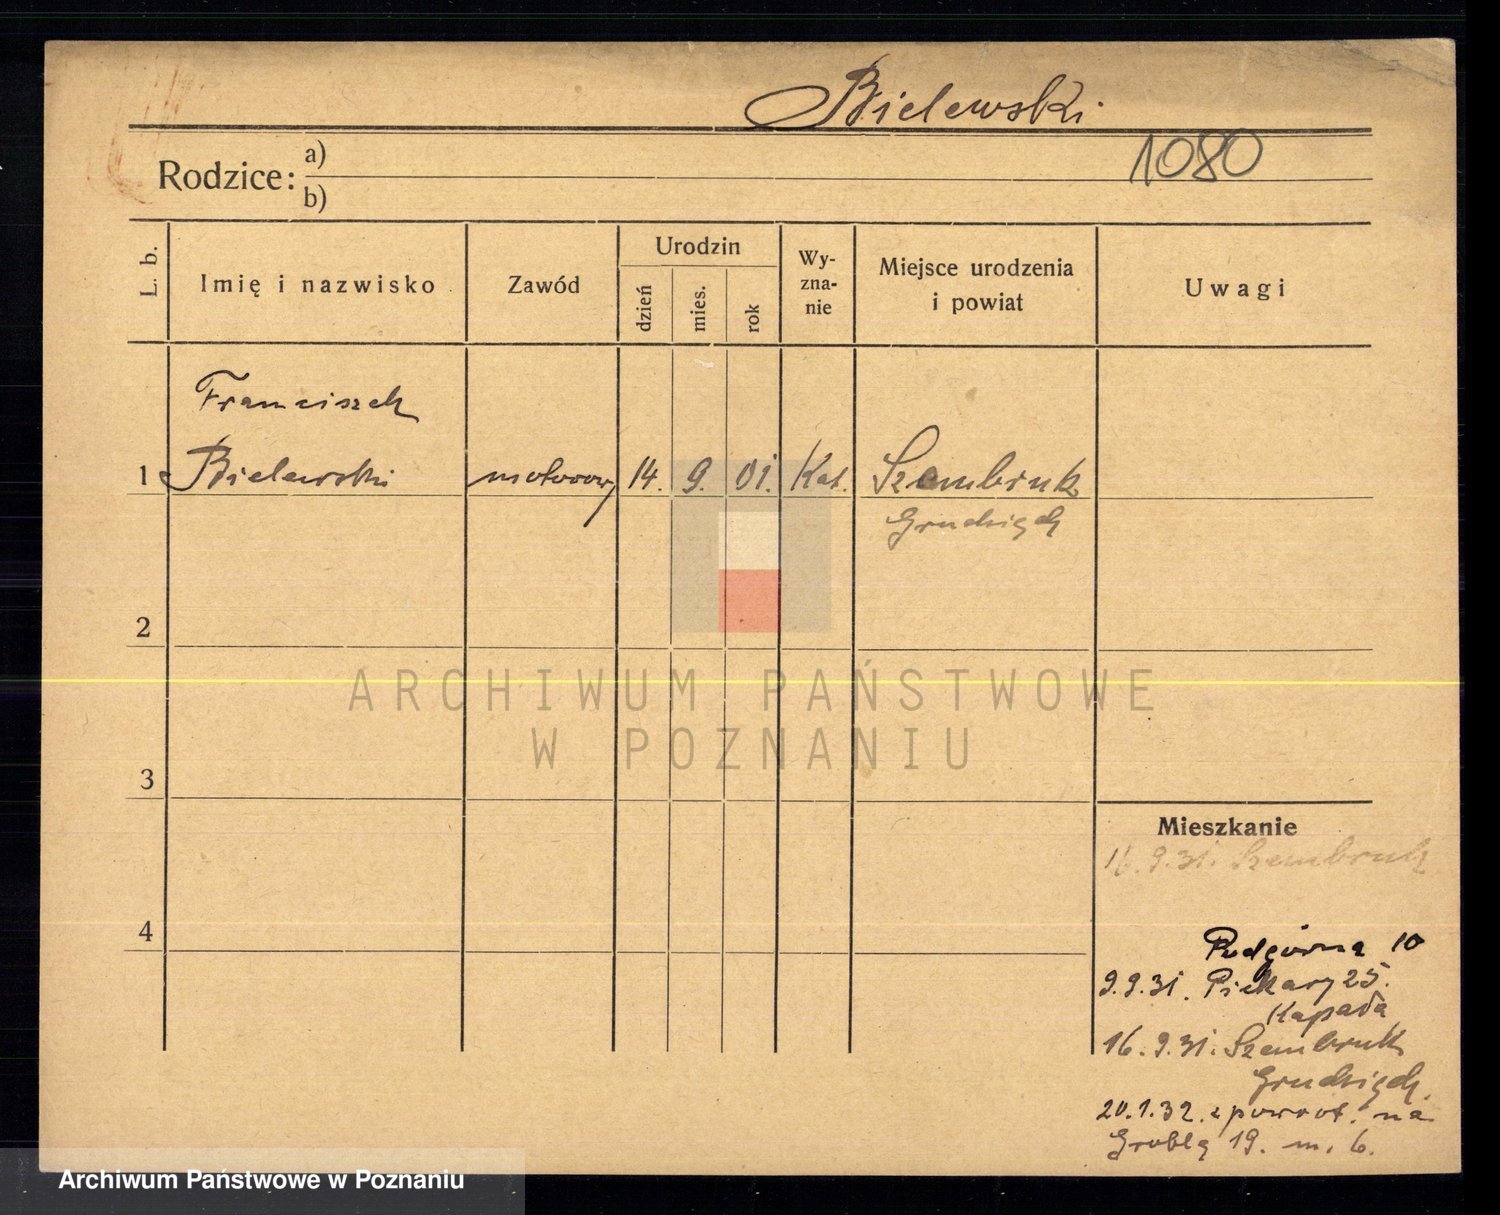 Bielewski
1080
Rodzice: a)
b)
L. b.
Imię i nazwisko
Zawód
Urodzin
dzień
mies.
rok
Wy-
zna-
nie
Miejsce urodzenia
i powiat
Uwagi
Franciszek
1 Bielewski motorowy 14. 9. 01. Kat. Szembruk
Grudziądz
2
ARCHIWUM PAŃSTWOWE
W POZNANIU
3
Mieszkanie
16.9.31. Szembruk
4
Podgórna 10
9.9.31. Piekary 25.
16.9.31. Szembruk
Grudziądz
20.1.32. z powrot. na
Groblą 19. m. 6.
Archiwum Państwowe w Poznaniu